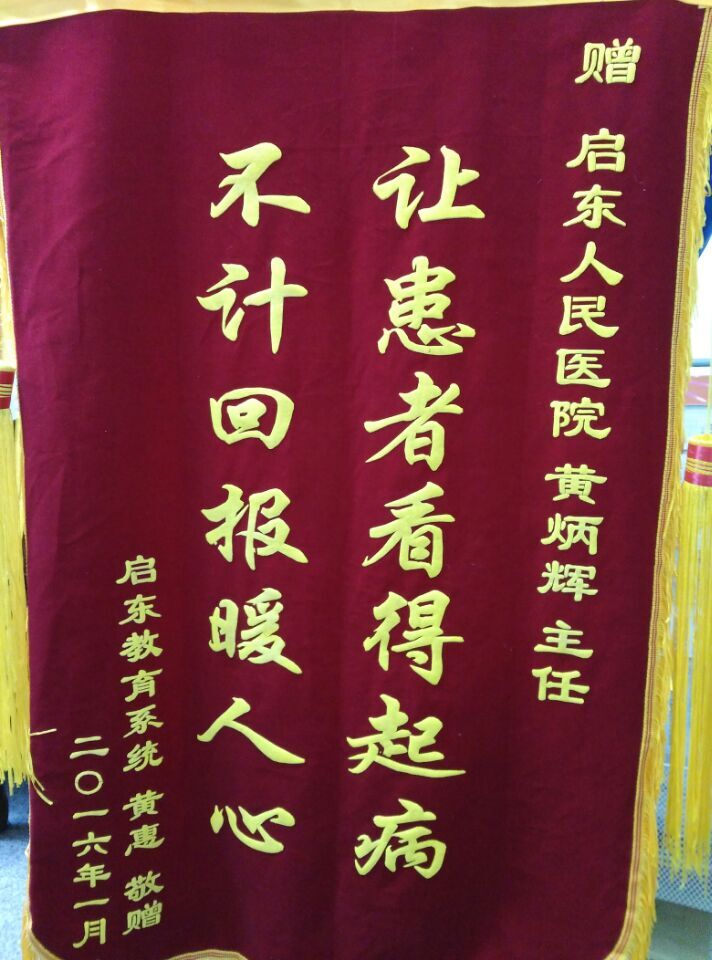 赠 启东人民医院 黄炳辉 主任
让患者看得起病
不计回报暖人心
启东教育系统 黄惠 敬赠
二〇一六年一月